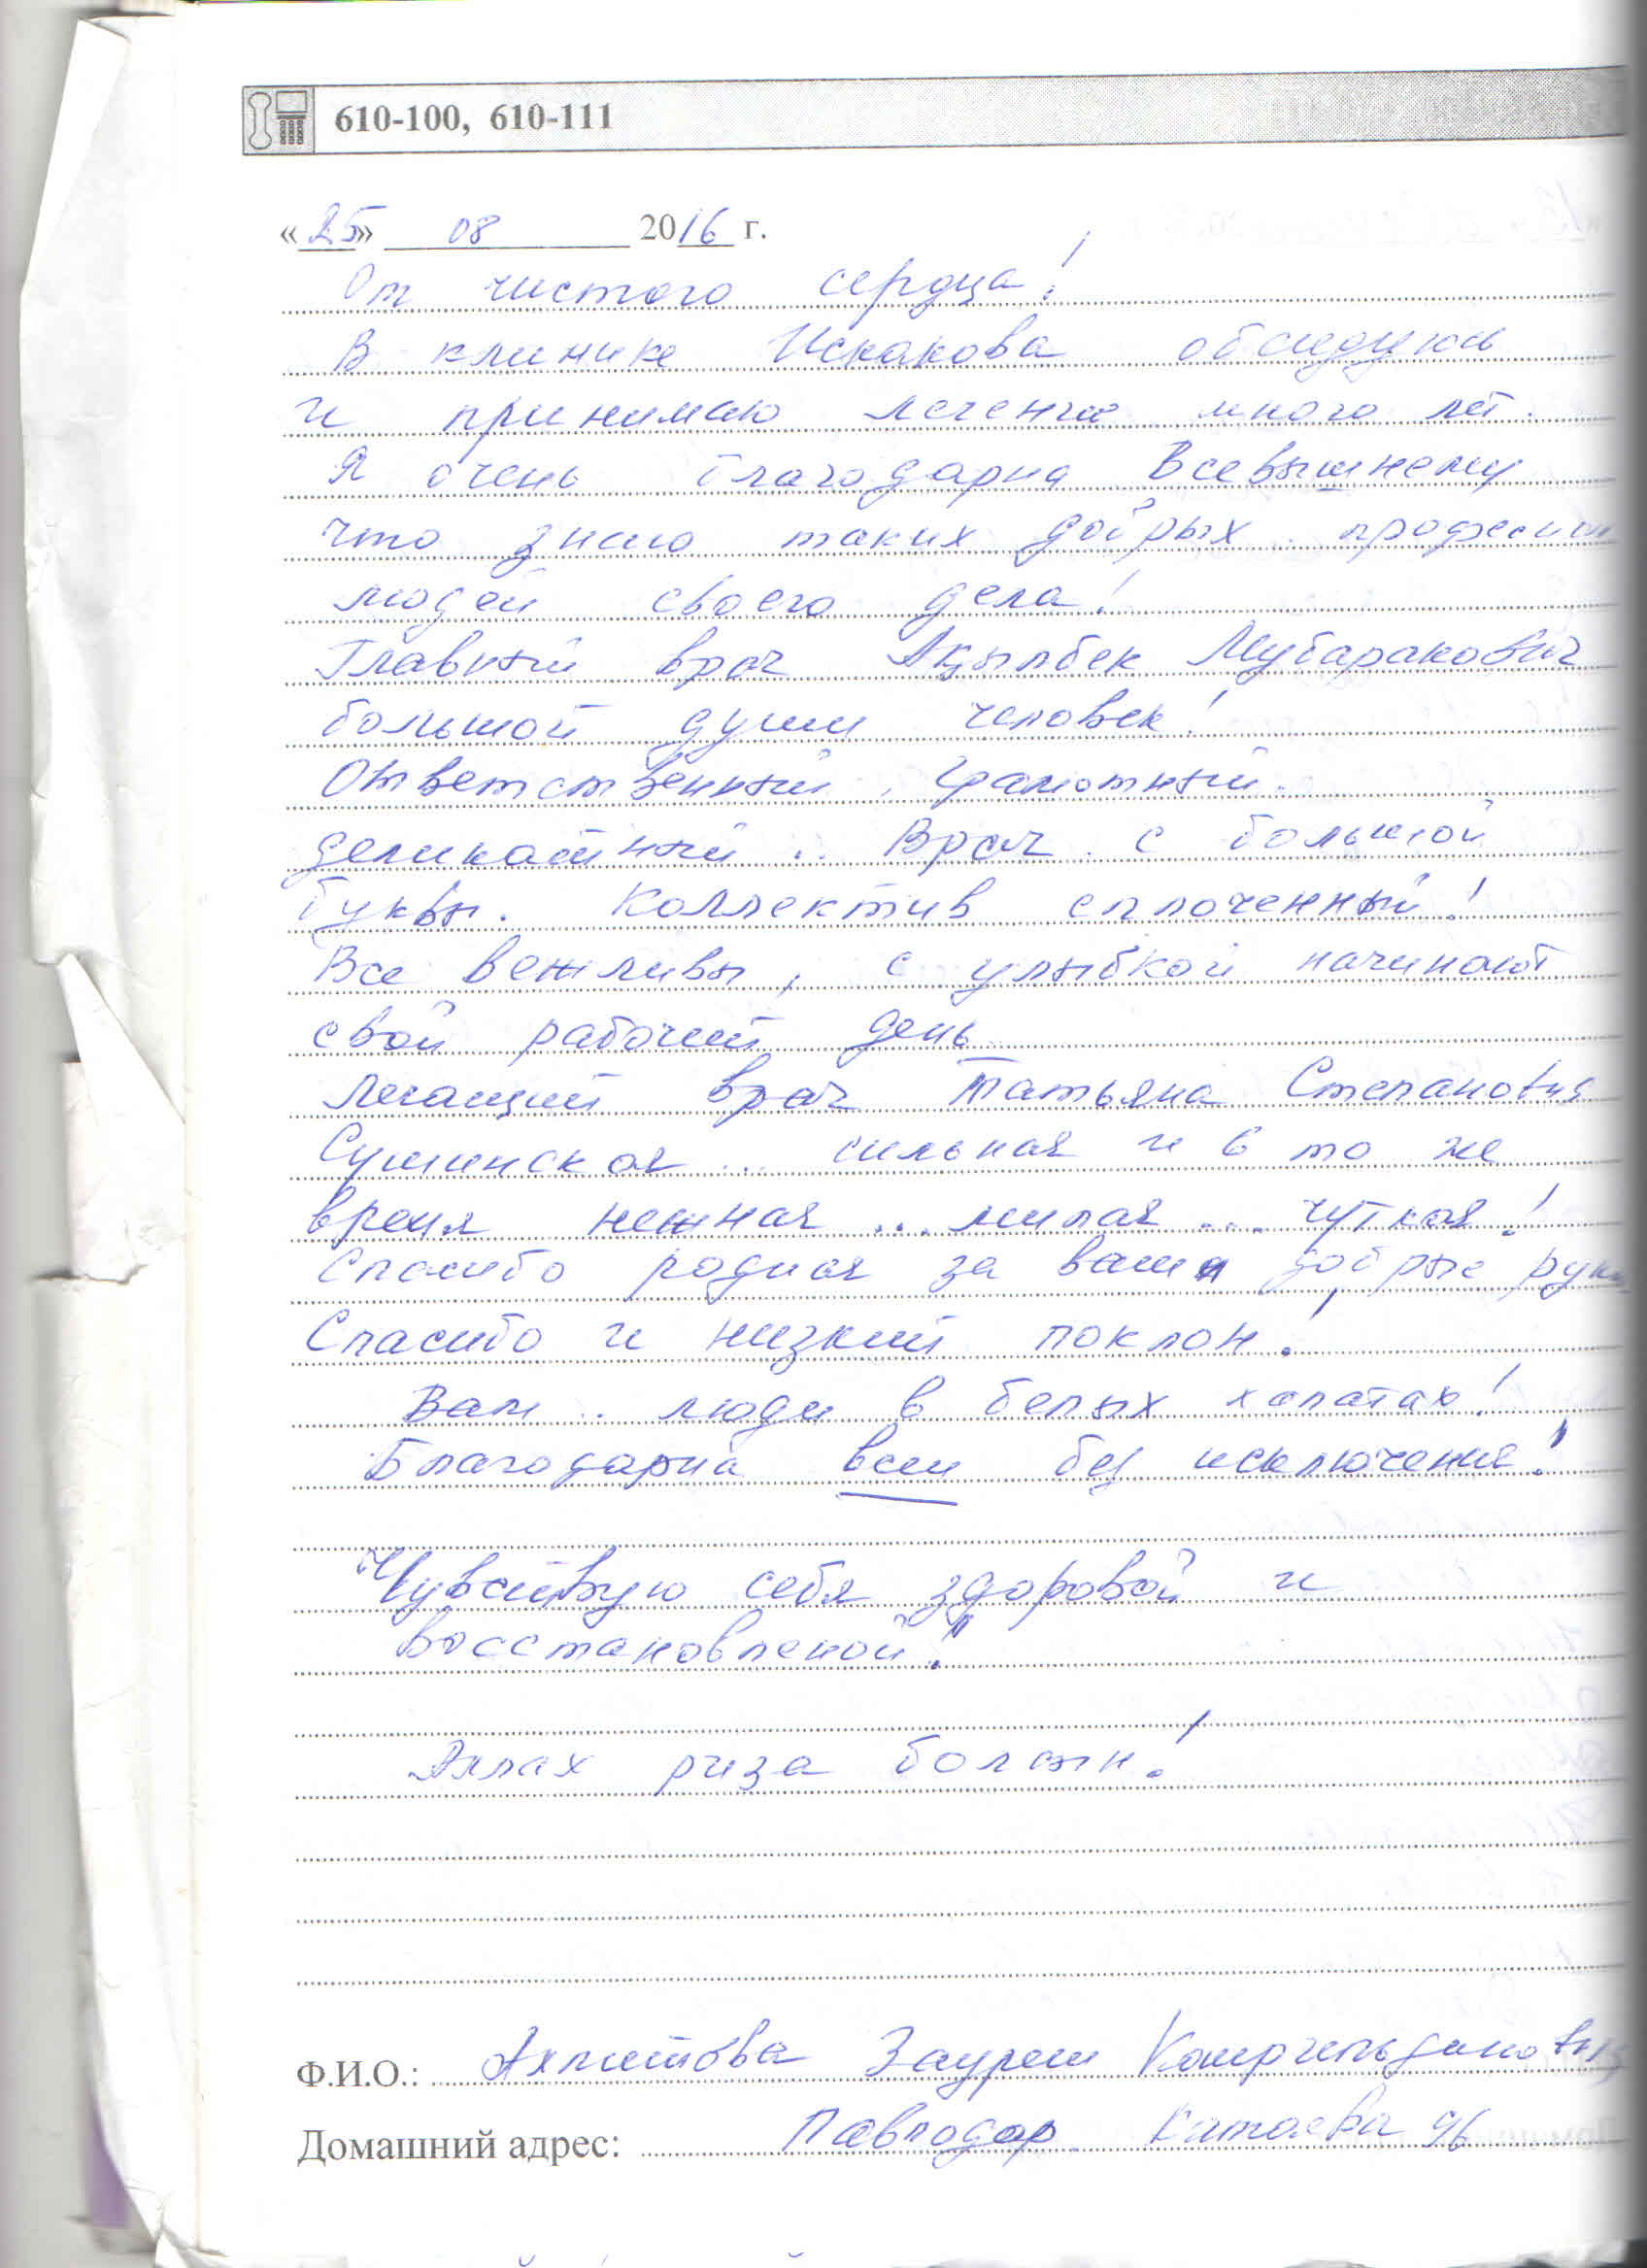 610-100, 610-111
«25» 08 2016 г.
От чистого сердца!
В клинике Искакова обследуюсь
и принимаю лечение много лет.
Я очень благодарна Всевышнему
что знаю таких добрых
людей своего дела!
Главный врач Ақылбек Мубаракович
большой души человек!
Ответственный, грамотный.
деликатный.. Врач с большой
буквы. Коллектив сплоченный!
Все вежливы, с улыбкой начинают
свой рабочий день
Лечащий врач Татьяна Степановна
Сушинская... сильная и в то же
время нежная ... милая ... чуткая!
Спасибо родная за ваши добрые руки
Спасибо и низкий поклон!
Вам .. люди в белых халатах!
Благодарна всем без исключения!
Чувствую себя здоровой и
восстановленой!"
Аллах риза болсын!
Ф.И.О.: Зауреш
Домашний адрес: Павлодар Катаева 96